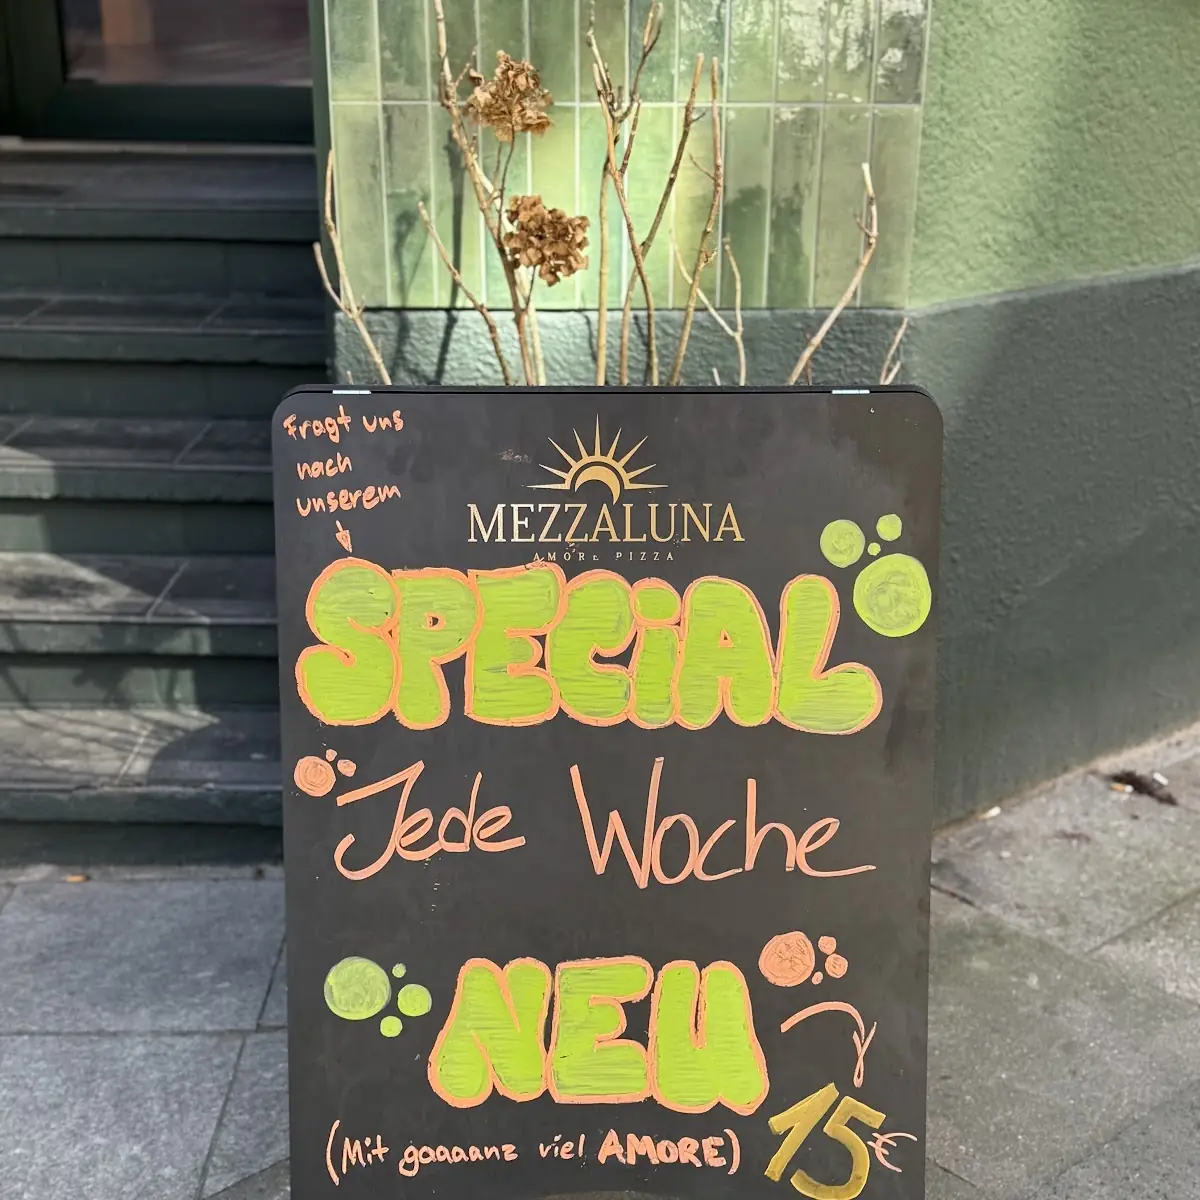 Fragt uns
nach
unserem
MEZZALUNA
AMORE PIZZA
SPECiAL
Jede Woche
NEU
(Mit gaaaanz viel AMORE)
15€